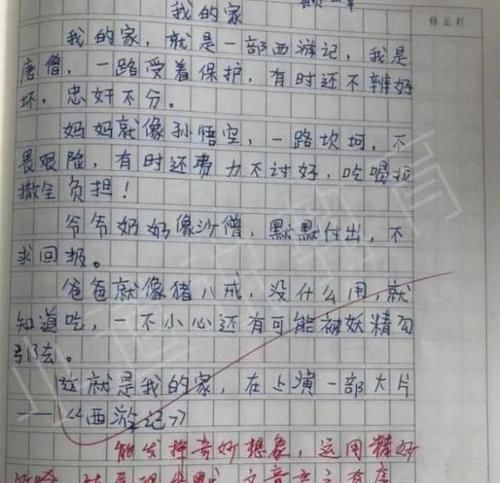 我的家
修正栏
我的家，就是一部西游记，我是
唐僧，一路受着保护，有时还不辨好
坏，忠奸不分。
妈妈就像孙悟空，一路坎坷，不
畏艰险，有时还费力不讨好，吃喝拉
撒全负担！
爷爷奶奶像沙僧，默默付出，不
求回报。
爸爸就像猪八戒，没什么用，就
知道吃，一不小心还有可能被妖精勾
引去。
这就是我的家，在上演一部大片
——《西游记》
能发挥奇妙想象，运用精妙